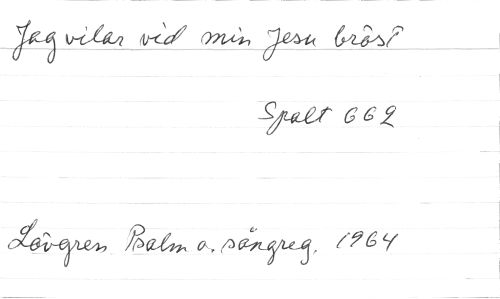 Jag vilar vid min Jesu bröst
Spalt 662
Lövgren Psalm o. sångreg. 1964